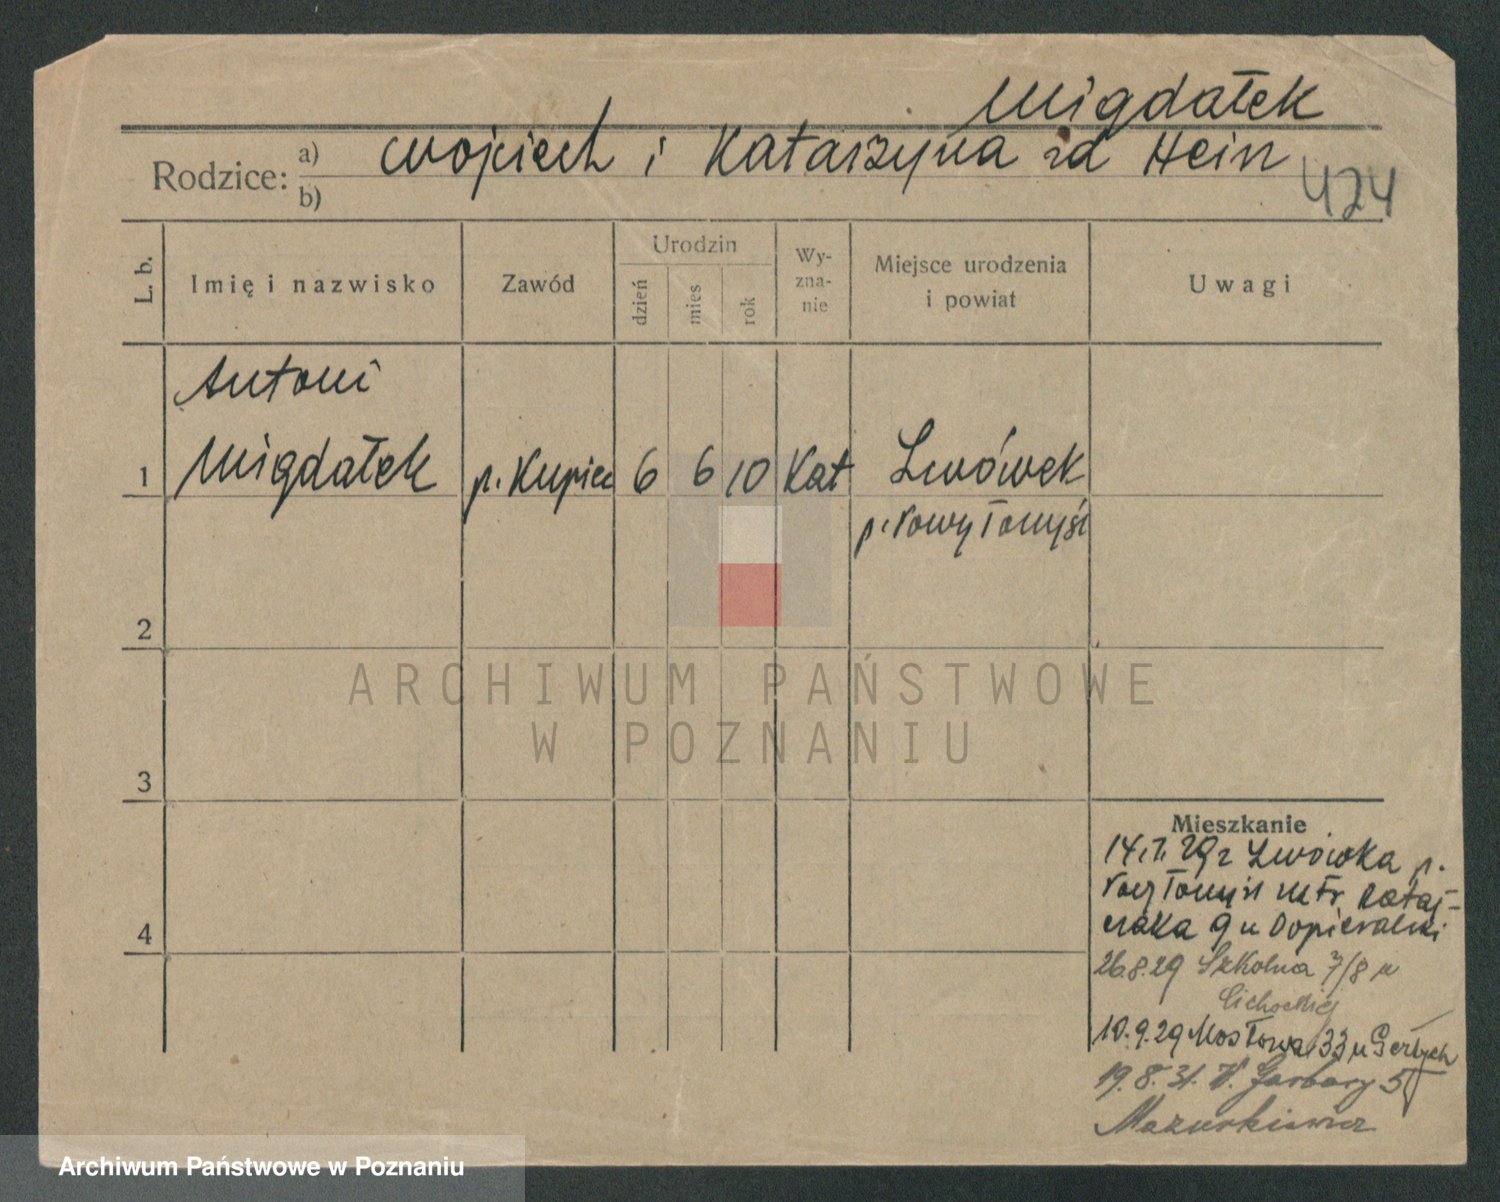 Migdałek
Rodzice: a) Wojciech i Katarzyna zd Hein
b)
424
L. b.
Imię i nazwisko
Zawód
Urodzin
dzień
mies
rok
Wy-
zna-
nie
Miejsce urodzenia
i powiat
Uwagi
Antoni
1 Migdałek p. Kupiec 6 6 10 Kat Lwówek
p. Nowy Tomyśl
2
ARCHIWUM PAŃSTWOWE
W POZNANIU
3
4
Mieszkanie
14.1.29 z Lwówka p.
Tomyśl Rataj-
czaka 9 u Dopieralski
26.8.29 Szkolna 7/8 u
Cichockiej
10.9.29 Mostowa 33 u Gertych
19.8.31. W. Garbary 5
Mazurkiewicz
Archiwum Państwowe w Poznaniu